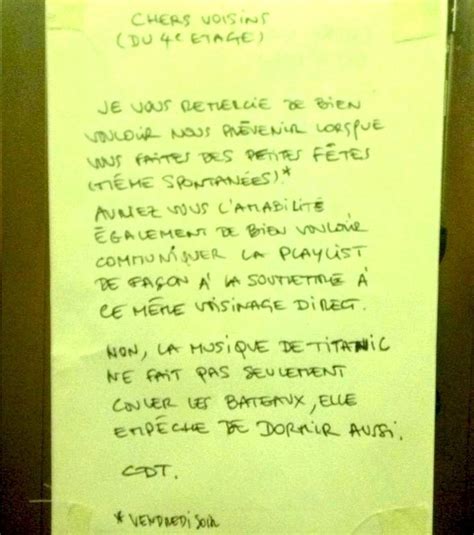 CHERS VOISINS
(DU 4e ETAGE)
JE VOUS REMERCIE DE BIEN
VOULOIR NOUS PRÉVENIR LORSQUE
VOUS FAITES DES PETITES FÊTES
(MÊME SPONTANÉES).*
AURIEZ VOUS L'AMABILITÉ
ÉGALEMENT DE BIEN VOULOIR
COMMUNIQUER LA PLAYLIST
DE FAÇON À LA SOUMETTRE À
CE MÊME VOISINAGE DIRECT.
NON, LA MUSIQUE DE TITANIC
NE FAIT PAS SEULEMENT
COULER LES BATEAUX, ELLE
EMPÊCHE DE DORMIR AUSSI.
CDT.
* VENDREDI SOIR